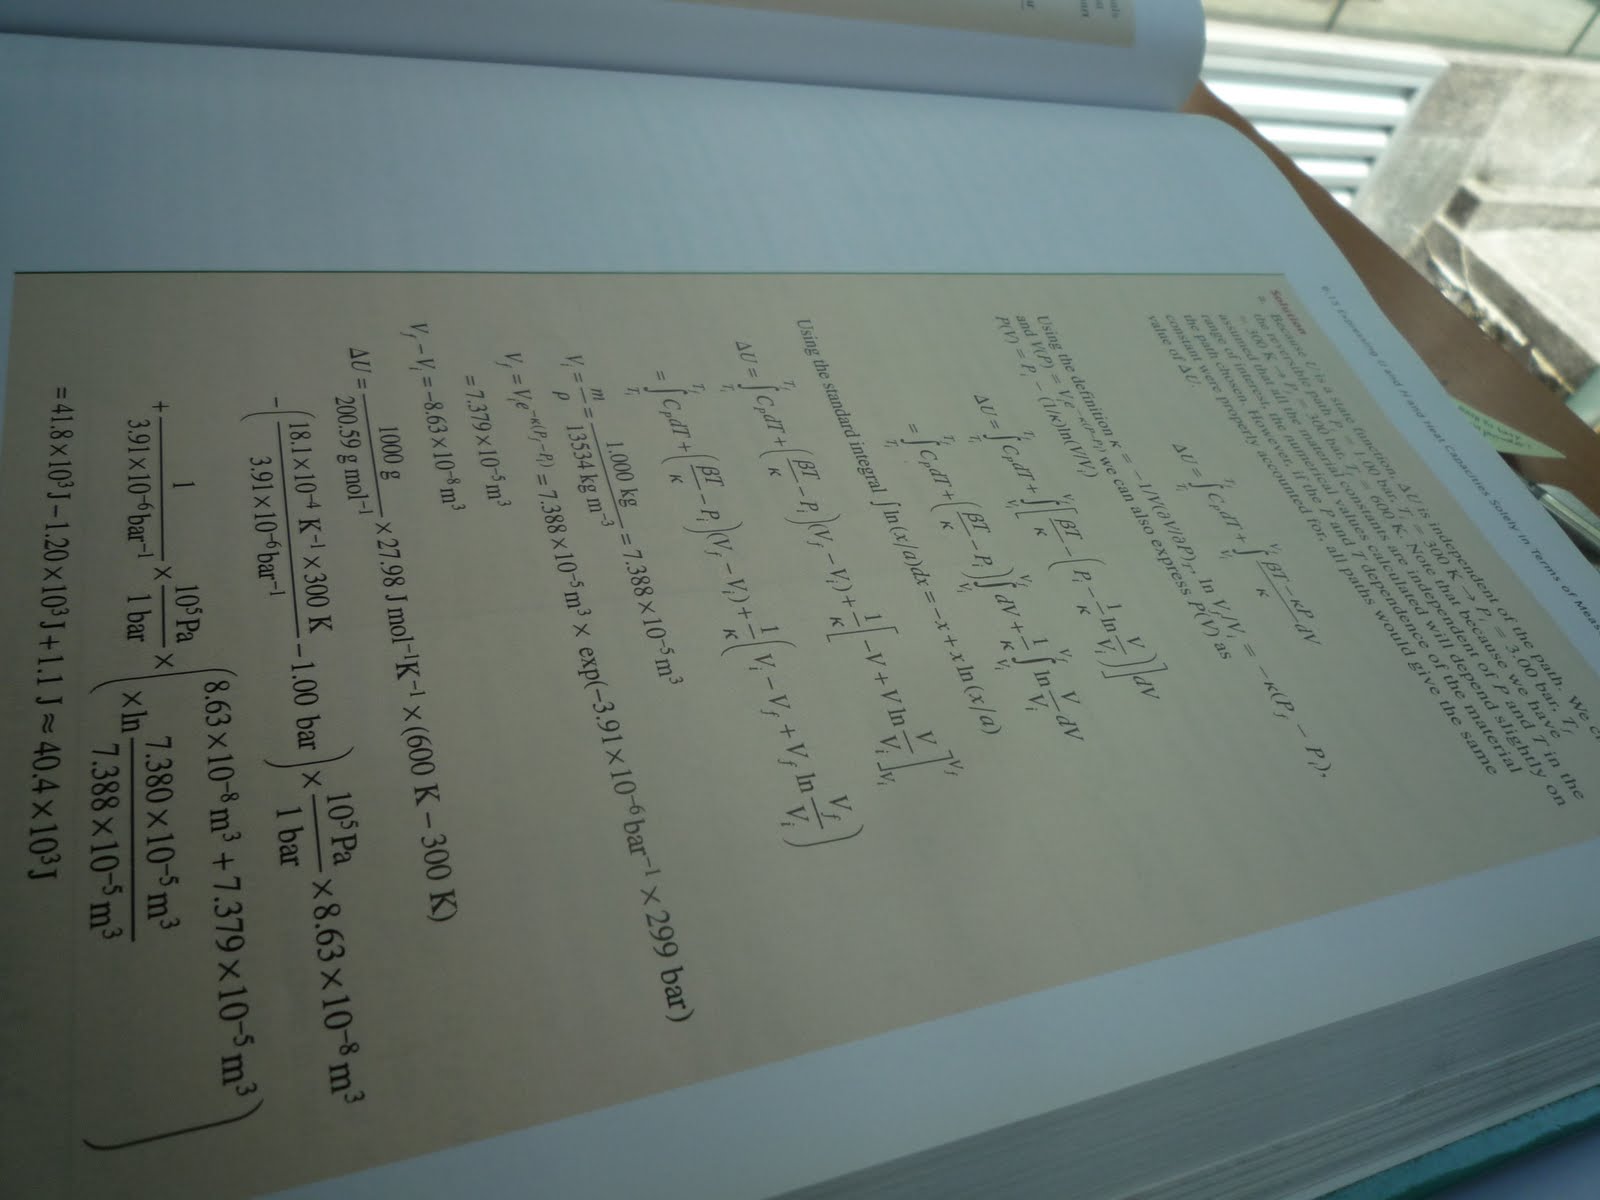 6.15 Expressing U and H and Heat Capacities Solely in Terms of
Solution
a. Because U is a state function, ΔU is independent of the path. We
the reversible path P_i = 1.00 bar, T_i = 300 K → P_i = 1.00 bar, T_f
= 600 K → P_f = 300 bar, T_f = 600 K. Note that because we have
assumed that all the material constants are independent of P and T in the
range of interest, the numerical values calculated will depend slightly on
the path chosen. However, if the P and T dependence of the material
constant were properly accounted for, all paths would give the same
value of ΔU.
ΔU = ∫_{T_i}^{T_f} C_P dT + ∫_{V_i}^{V_f} (βT − κP)/κ dV
Using the definition κ = −1/V(∂V/∂P)_T, ln V_f/V_i = −κ(P_f − P_i),
and V(P) = V_i e^{−κ(P−P_i)}, we can also express P(V) as
P(V) = P_i − (1/κ)ln(V/V_i)
ΔU = ∫_{T_i}^{T_f} C_P dT + ∫_{V_i}^{V_f} [βT/κ − (P_i − 1/κ ln V/V_i)] dV
= ∫_{T_i}^{T_f} C_P dT + (βT/κ − P_i) ∫_{V_i}^{V_f} dV + 1/κ ∫_{V_i}^{V_f} ln V/V_i dV
Using the standard integral ∫ ln(x/a)dx = −x + x ln(x/a)
ΔU = ∫_{T_i}^{T_f} C_P dT + (βT/κ − P_i)(V_f − V_i) + 1/κ [−V + V ln V/V_i]_{V_i}^{V_f}
= ∫_{T_i}^{T_f} C_P dT + (βT/κ − P_i)(V_f − V_i) + 1/κ (V_i − V_f + V_f ln V_f/V_i)
V_i = m/ρ = 1.000 kg/13534 kg m⁻³ = 7.388 × 10⁻⁵ m³
V_f = V_i e^{−κ(P_f−P_i)} = 7.388 × 10⁻⁵ m³ × exp(−3.91 × 10⁻⁶ bar⁻¹ × 299 bar)
= 7.379 × 10⁻⁵ m³
V_f − V_i = −8.63 × 10⁻⁸ m³
ΔU = 1000 g/200.59 g mol⁻¹ × 27.98 J mol⁻¹K⁻¹ × (600 K − 300 K)
− (18.1 × 10⁻⁴ K⁻¹ × 300 K/3.91 × 10⁻⁶ bar⁻¹ − 1.00 bar) × 10⁵ Pa/1 bar × 8.63 × 10⁻⁸ m³
+ 1/3.91 × 10⁻⁶ bar⁻¹ × 10⁵ Pa/1 bar × (8.63 × 10⁻⁸ m³ + 7.379 × 10⁻⁵ m³
× ln 7.380 × 10⁻⁵ m³/7.388 × 10⁻⁵ m³)
= 41.8 × 10³ J − 1.20 × 10³ J + 1.1 J ≈ 40.4 × 10³ J